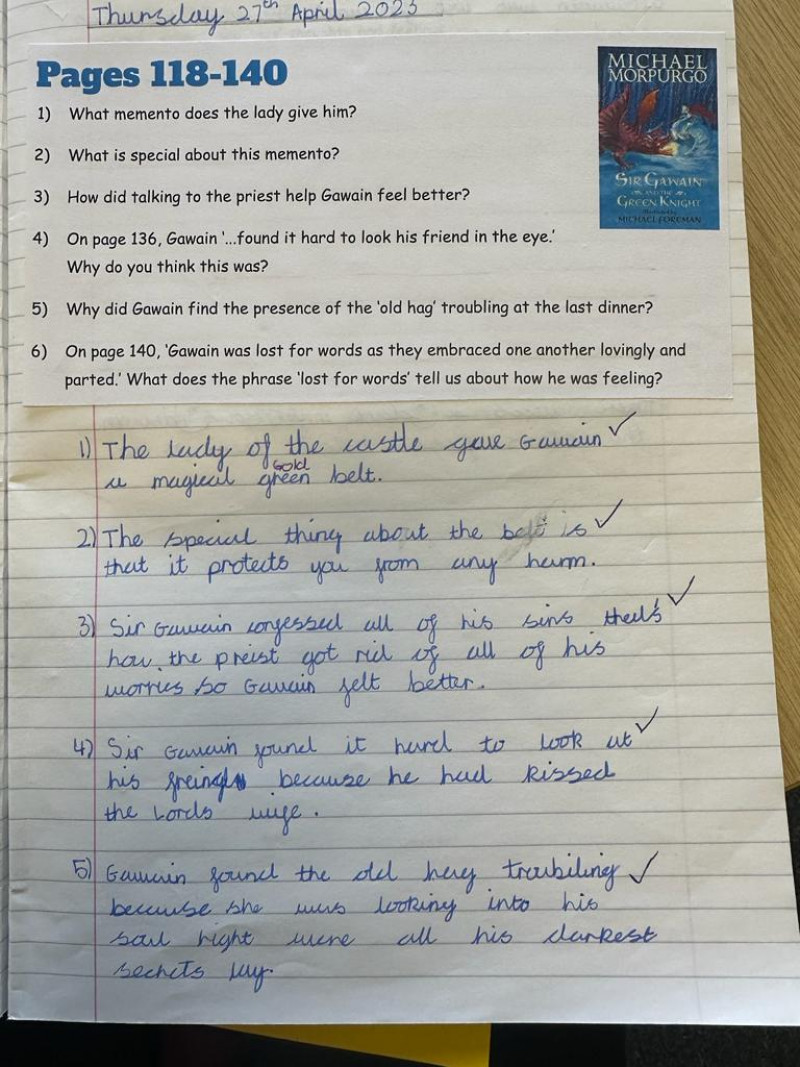 Thursday 27th April 2023
Pages 118-140
MICHAEL
MORPURGO
SIR GAWAIN
AND THE
GREEN KNIGHT
Illustrated by
MICHAEL FOREMAN
1) What memento does the lady give him?
2) What is special about this memento?
3) How did talking to the priest help Gawain feel better?
4) On page 136, Gawain '...found it hard to look his friend in the eye.'
Why do you think this was?
5) Why did Gawain find the presence of the 'old hag' troubling at the last dinner?
6) On page 140, 'Gawain was lost for words as they embraced one another lovingly and
parted.' What does the phrase 'lost for words' tell us about how he was feeling?
1) The lady of the castle gave Gawain ✓
Gold
a magical green belt.
2) The special thing about the belt is ✓
that it protects you from any harm.
3) Sir Gawain confessed all of his sins that's ✓
how the preist got rid of all of his
worries so Gawain felt better.
4) Sir Gawain found it hard to look at ✓
his freind because he had kissed
the Lords wife.
5) Gawain found the old hag troubiling ✓
because she was looking into his
soul right were all his darkest
secrets lay.